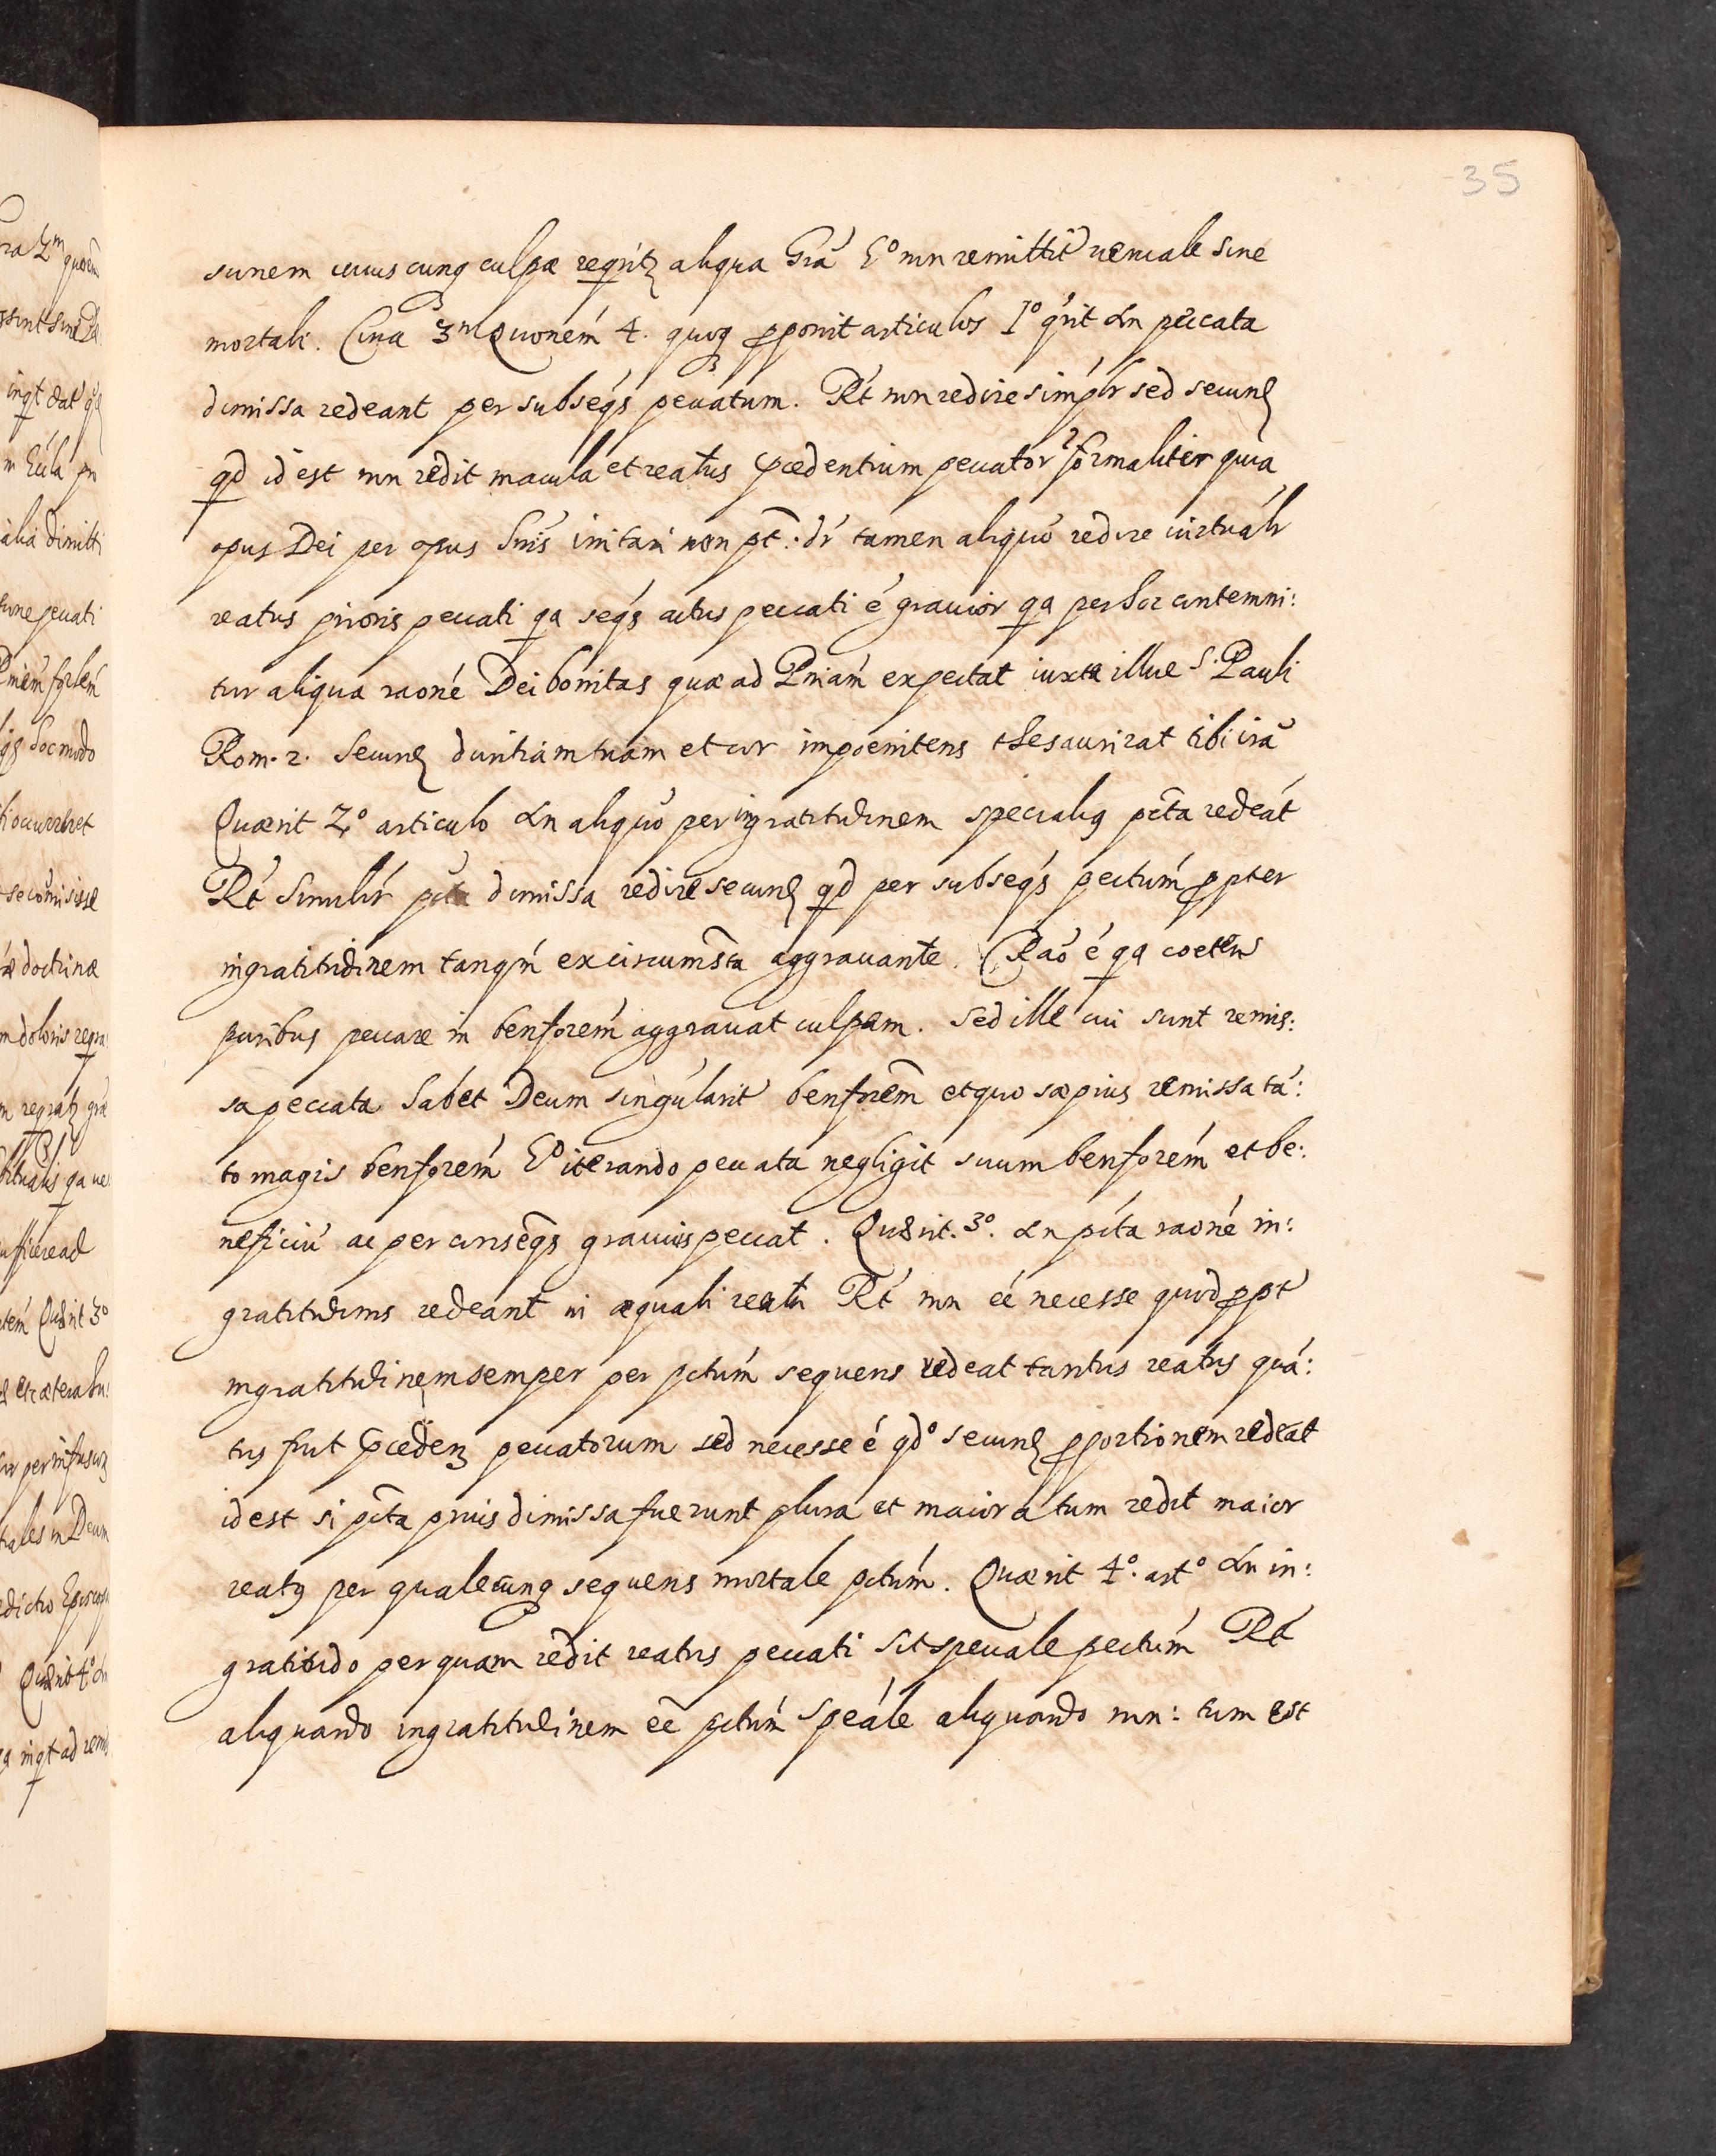 35
sunem cuiuscunq culpæ reqritʒ aliqua Grã Eº non remittit̃ veniale sine
mortali. Circa 3m Quonem̃ 4. quoq pponit articulos 1º q̃rit An peccata
dimissa redeant per subseq̃s peccatum. Rt̃ non redire simpĺr sed secund
qd id est non redit macula et reatus præcedentium peccator formaliter quia
opus Dei per opus hnis irritari non pt̃: dr̃ tamen aliquõ redire virtuaĺr
reatus prioris peccati qa seq̃s actus peccati é gravior qa per hoc contemni:
tur aliqua raoné Dei bonitas quæ ad Pniam̃ expectat iuxta illue S. Pauli
Rom. 2. Secund duritiam tuam et cor impoenitens thesaurizat tibi irã
Quærit 2º articulo An aliquõ per ingratitudinem specialiq pc̃ta redeãt
Rt̃ Similir̃ pc̃ta dimissa redire secund qd per subseq̃s pectum̃ ppter
ingratitudinem tanqm̃ ex circumsta aggravante. Raõ é qa coeteris
paribus peccare in benforem̃ aggravat culpam. Sed ille cui sunt remis:
sa peccata habet Deum singularit̃ benfrem̃ et quo sæpius remissa tã:
to magis benforem̃ Eº iterando peccata negligit suum benforem̃ et be:
neficiũ ac per conseq̃s gravius peccat. Quærit. 3º. An pc̃ta raoné in:
gratitudinis redeant in æquali reatu Rt̃ non eé necesse quod ppt̃
ingratitudinem semper per pctum̃ sequens redeat tantus reatus quã:
tus fuit præceden peccatorum sed necesse é qdº secund pportionem redeat
id est si pc̃ta prius dimissa fuerunt plura et maiora tum redit maior
reatq per qualecunq sequens mortale pctum̃. Quærit 4º. artº An in:
gratitudo per quam redit reatus peccati sit speciale pectum̃ Rt̃
aliquando ingratitudinem eẽ pctum̃ speãle aliquando non: tum est